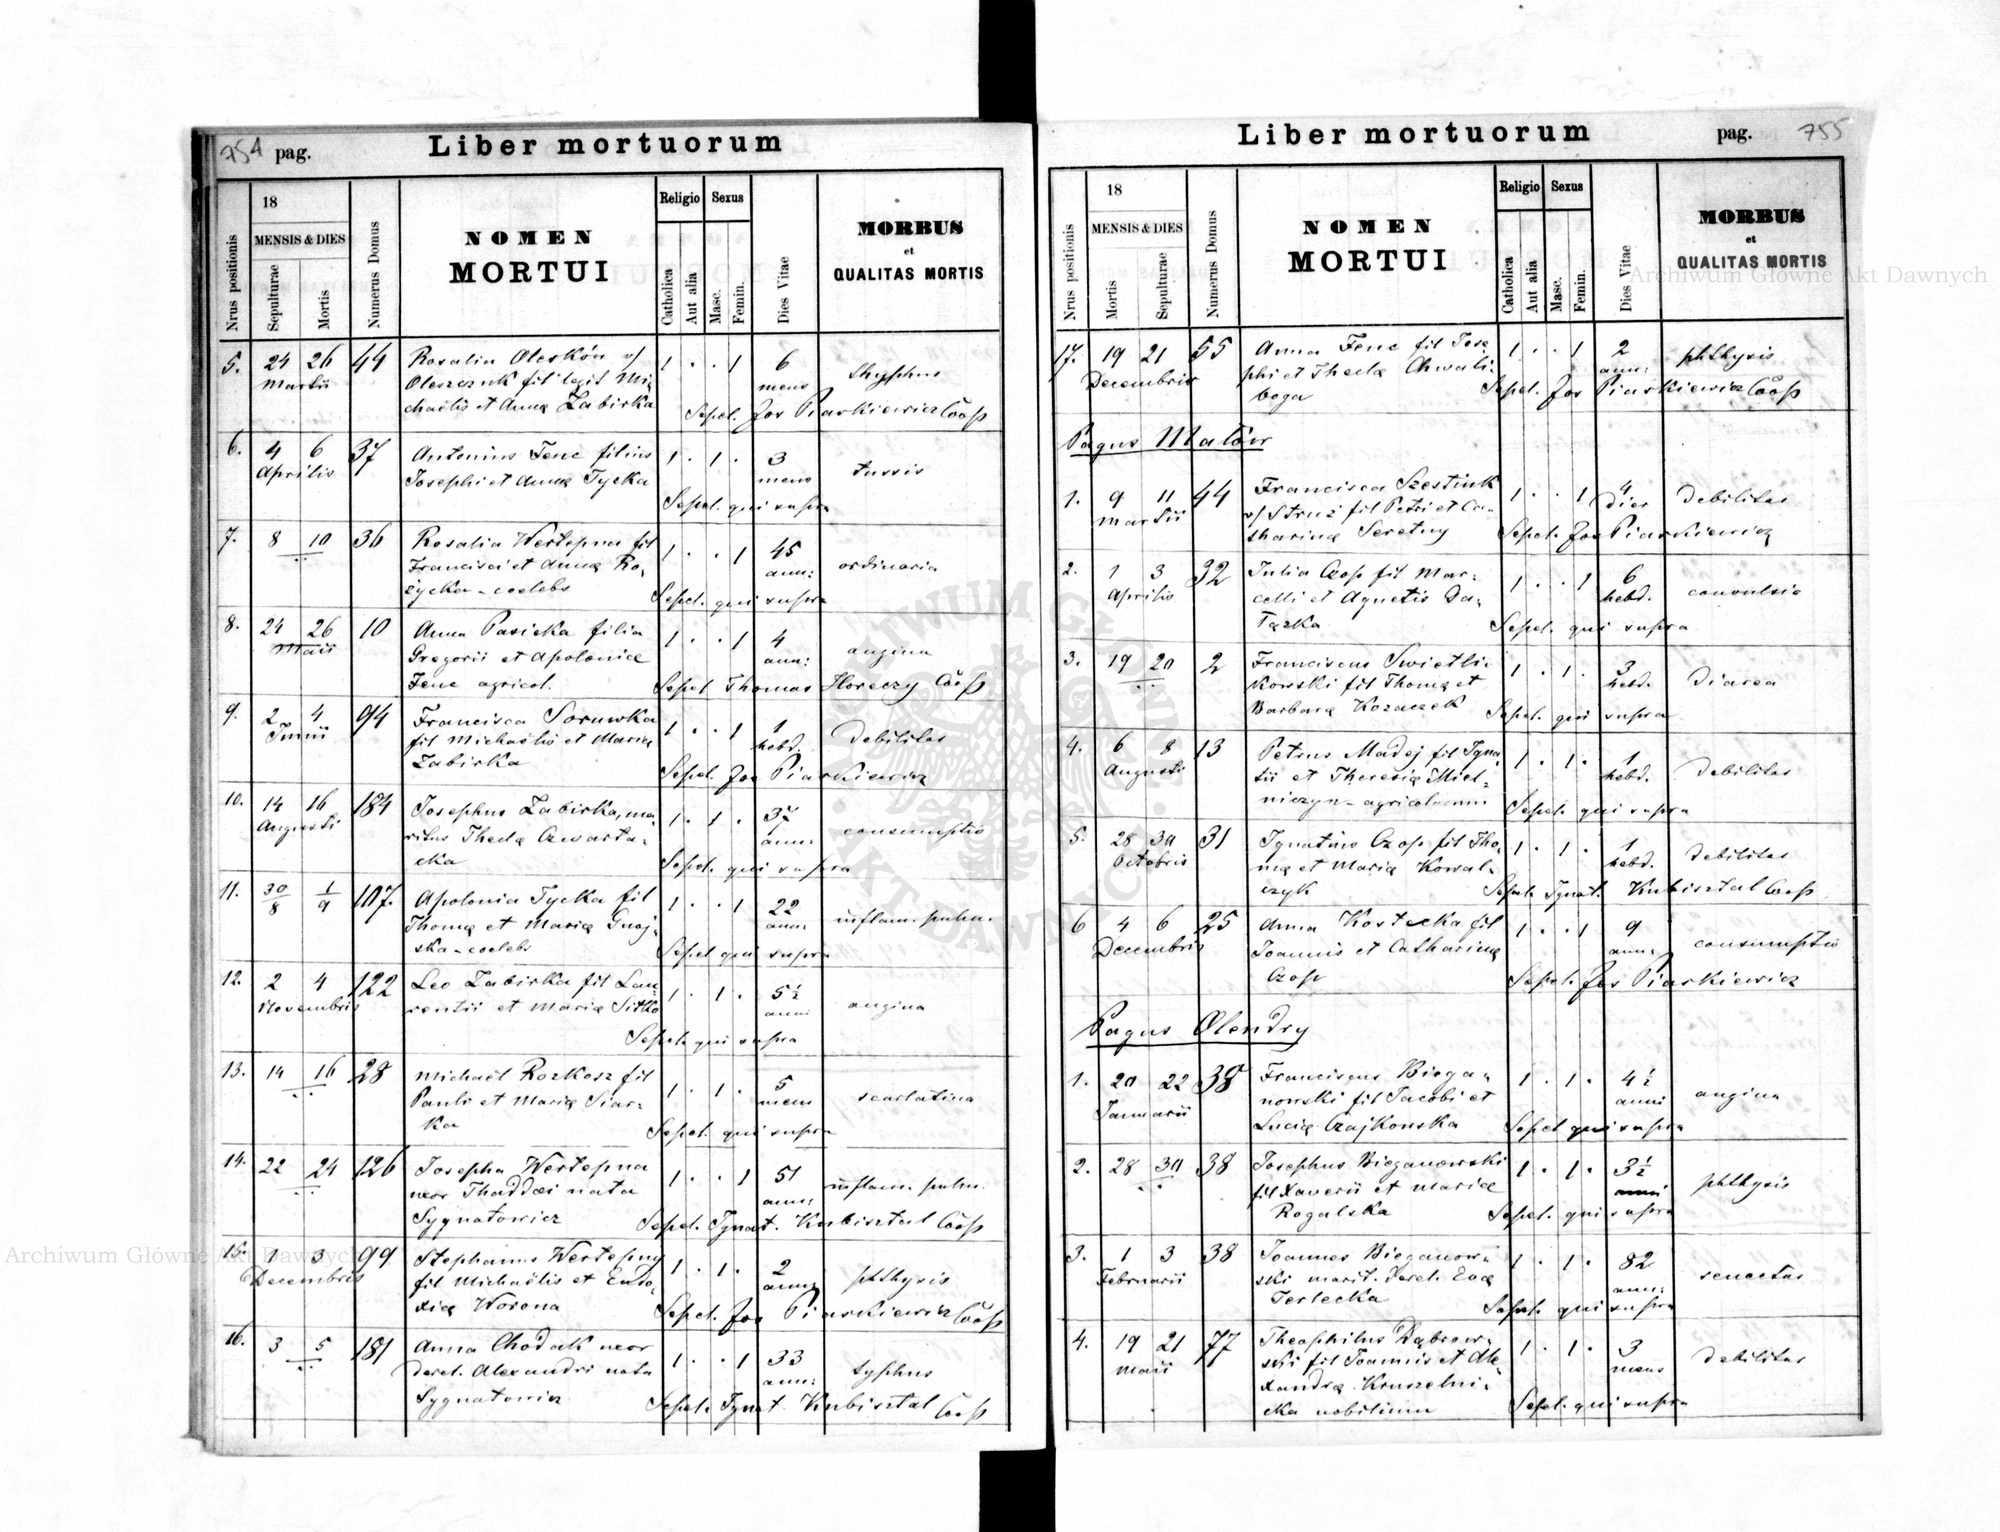 754 pag. Liber mortuorum
18
MENSIS & DIES
Nrus positionis
Sepulturae
Mortis
Numerus Domus
NOMEN
MORTUI
Religio
Catholica
Aut alia
Sexus
Masc.
Femin.
Dies Vitae
MORBUS
et
QUALITAS MORTIS
5. 24 26 44 Rosalia Oleskón v/ 1 . . 1 6
Martii Oleszczuk fil legit Mi- mens thyphus
chaëlis et Annę Zabirka Sepel. Jos Piaskiewicz Coop
6. 4 6 37 Antonius Fenc filius 1 . 1 . 3
Aprilis Josephi et Annę Tycka mens tussis
Sepel. qui supra
7. 8 10 36 Rosalia Wertepna fil 1 . . 1 45
Francisci et Annę Ro- ann: ordinaria
życka - coelebs Sepel. qui supra
8. 24 26 10 Anna Pasicka filia 1 . . 1 4
Maii Gregorii et Apolonię ann: angina
Fenc agricol. Sepel Thomas Horeczy Coop
9. 2 4 94 Francisca Soruwka 1 . . 1 1
Junii fil Michaëlis et Marię hebd. debilitas
Zabirka Sepel. Jos Piaskiewicz
10. 14 16 184 Josephus Zabirka, ma- 1 . 1 . 37
Augusti ritus Theclę Czwarta- ann: consumptio
cka Sepel. qui supra
11. 30/8 1/9 107. Apolonia Tycka fil 1 . . 1 22
Thomę et Marię Gnoj- ann: inflam. pulm.
ska - coelebs Sepel qui supra
12. 2 4 122 Leo Zabirka fil Lau- 1 . 1 . 5½
Novembris rentii et Marię Sitko anni angina
Sepel. qui supra
13. 14 16 28 Michaël Rozkosz fil 1 . 1 . 5
Pauli et Marię Siar- mens scarlatina
ka Sepel. qui supra
14. 22 24 126 Josepha Wertepna 1 . . 1 51
uxor Thaddæi nata ann: inflam. pulm.
Sygnatowicz Sepel. Ignat. Kubisztal Coop
15. 1 3 99 Stephanus Wertepny 1 . 1 . 2
Decembris fil Michaëlis et Eudo- anni phthysis
xię Worona Sepel. Jos Piaskiewicz Coop
16. 3 5 181 Anna Chodak uxor 1 . . 1 33
derel. Alexandri nata ann: typhus
Sygnatowicz Sepel. Ignat. Kubisztal Coop
Liber mortuorum pag. 755
18
MENSIS & DIES
Nrus positionis
Mortis
Sepulturae
Numerus Domus
NOMEN
MORTUI
Religio
Catholica
Aut alia
Sexus
Masc.
Femin.
Dies Vitae
MORBUS
et
QUALITAS MORTIS
17. 19 21 55 Anna Fenc fil Jose- 1 . . 1 2
Decembris phi et Theclę Chwali- ann: phthysis
boga Sepel. Jos Piaskiewicz Coop
Pagus Malów
1. 9 11 44 Francisca Szestiuk 1 . . 1 4
Martii v/ Struż fil Petri et Ca- dier debilitas
tharinę Seretny Sepel. Jos Piaskiewicz
2. 1 3 32 Julia Czop fil Mar- 1 . . 1 6
Aprilis celli et Agnetis Da- hebd. convulsio
Sepel. qui supra
3. 19 20 2 Franciscus Swietli- 1 . 1 . 3
kowski fil Thomę et hebd. diarea
Barbarę Kozaczek Sepel. qui supra
4. 6 8 13 Petrus Madej fil Igna- 1 . 1 . 1
Augusti tii et Theresię Miel- hebd. debilitas
niczyn - agricolarum Sepel. qui supra
5. 28 30 31 Ignatius Czop fil Tho- 1 . 1 . 1
Octobris mę et Marię Kowal- hebd. debilitas
czyk Sepel. Ignat. Kubisztal Coop
6 4 6 25 Anna Kostecka fil 1 . . 1 9
Decembris Joannis et Catharinę ann: consumptio
Czop Sepel. Jos Piaskiewicz
Pagus Olendry
1. 20 22 38 Franciscus Biega- 1 . 1 . 4½
Januarii nowski fil Jacobi et anni angina
Lucię Czajkowska Sepel qui supra
2. 28 30 38 Josephus Bieganowski 1 . 1 . 3½
fil Xaverii et Marię anni phthysis
Rogalska Sepel. qui supra
3. 1 3 38 Joannes Bieganow- 1 . 1 . 82
Februarii ski marit. derel. Evę ann: senectus
Terlecka Sepel. qui supra
4. 19 21 77 Theophilus Dąbrow- 1 . 1 . 3
Maii ski fil Joannis et Ale- mens debilitas
xandrę Kruszelni-
cka nobilium Sepel. qui supra
Archiwum Główne Akt Dawnych
Archiwum Główne Akt Dawnych
ARCHIWUM GŁÓWNE AKT DAWNYCH